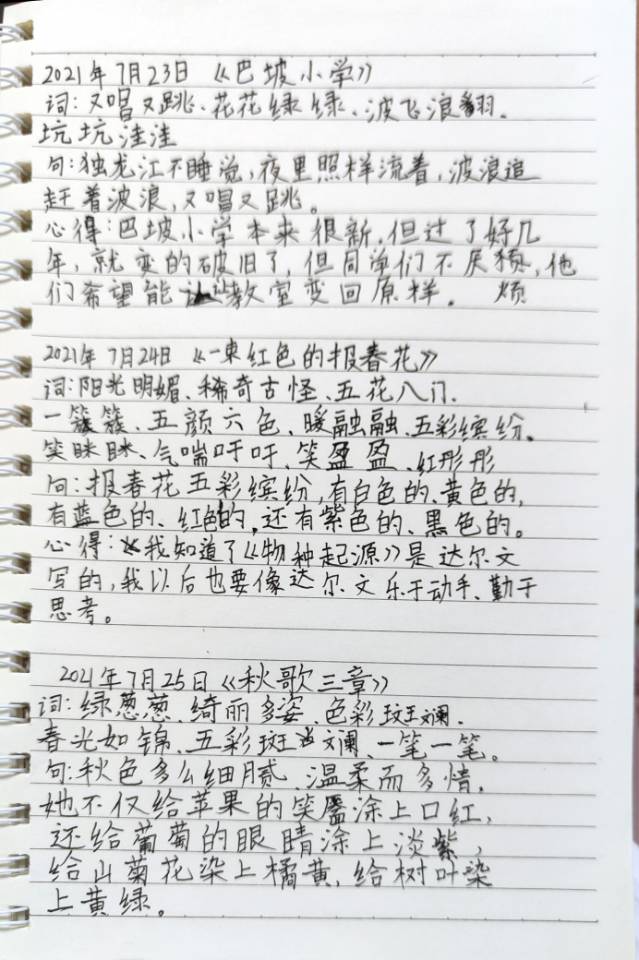 2021年7月23日《巴坡小学》
词:又唱又跳、花花绿绿、波飞浪翻.
坑坑洼洼
句:独龙江不睡觉,夜里照样流着,波浪追
赶着波浪,又唱又跳。
心得:巴坡小学本来很新,但过了好几
年,就变的破旧了,但同学们不厌,他
们希望能教室变回原样。 烦
2021年7月24日《一束红色的报春花》
词:阳光明媚、稀奇古怪、五花八门.
一簇簇、五颜六色、暖融融、五彩缤纷。
笑眯眯、气喘吁吁、笑盈盈、红彤彤
句:报春花五彩缤纷,有白色的、黄色的,
有蓝色的、红色的,还有紫色的、黑色的。
心得:我知道了《物种起源》是达尔文
写的,我以后也要像达尔文乐于动手、勤于
思考。
2021年7月25日《秋歌三章》
词:绿葱葱、绮丽多姿、色彩斑斓.
春光如锦、五彩斑斓、一笔一笔。
句:秋色多么细腻、温柔而多情,
她不仅给苹果的笑靥涂上口红,
还给葡萄的眼睛涂上淡紫,
给山菊花染上橘黄,给树叶染
上黄绿。